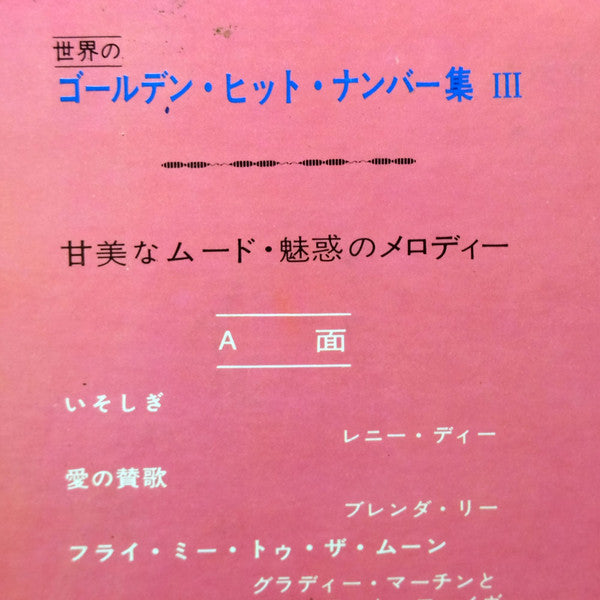 世界の
ゴールデン・ヒット・ナンバー集 III
甘美なムード・魅惑のメロディー
A 面
いそしぎ
レニー・ディー
愛の賛歌
ブレンダ・リー
フライ・ミー・トゥ・ザ・ムーン
グラディー・マーチンと